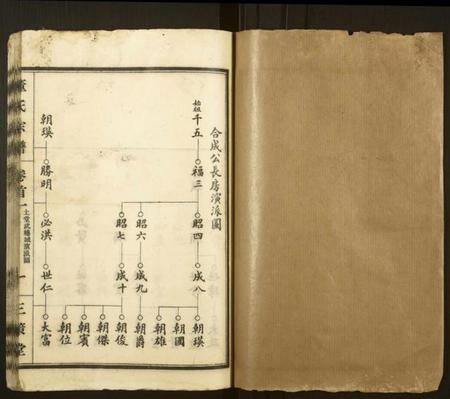 合成公長房演派圖
始祖千五
福三
昭四 昭六 昭七
成八 成九 成十
朝瑛 朝國 朝雄 朝爵 朝俊 朝傑 朝賓 朝位
朝瑛
勝明
必洪
世仁
大富
董氏宗譜 卷首 一 三策堂